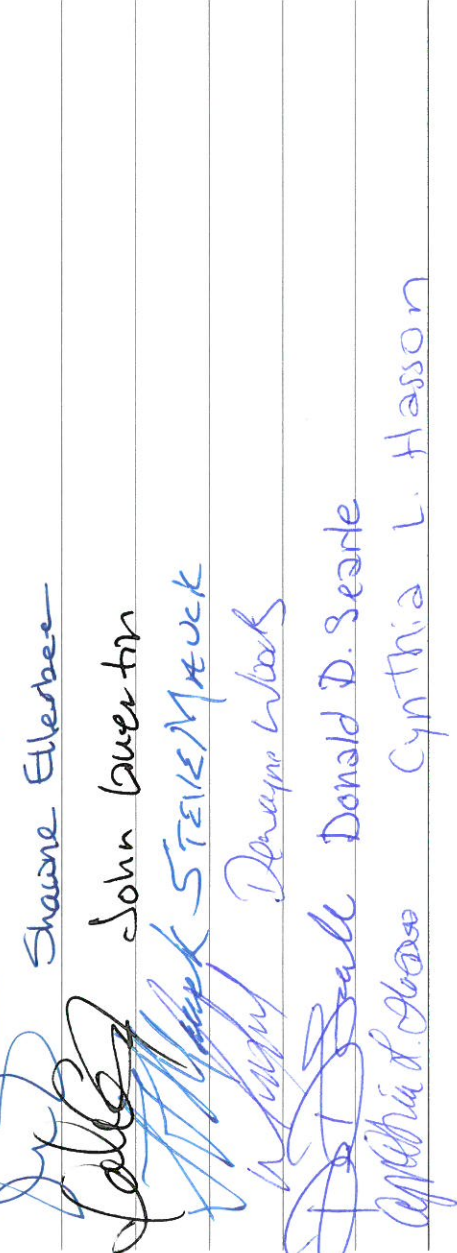 Shawne Ellerbee
John Laverton
STEVE MAUCK
Dewayne Woods
Donald D. Searle
Cynthia L. Hasson Cynthia L. Hasson